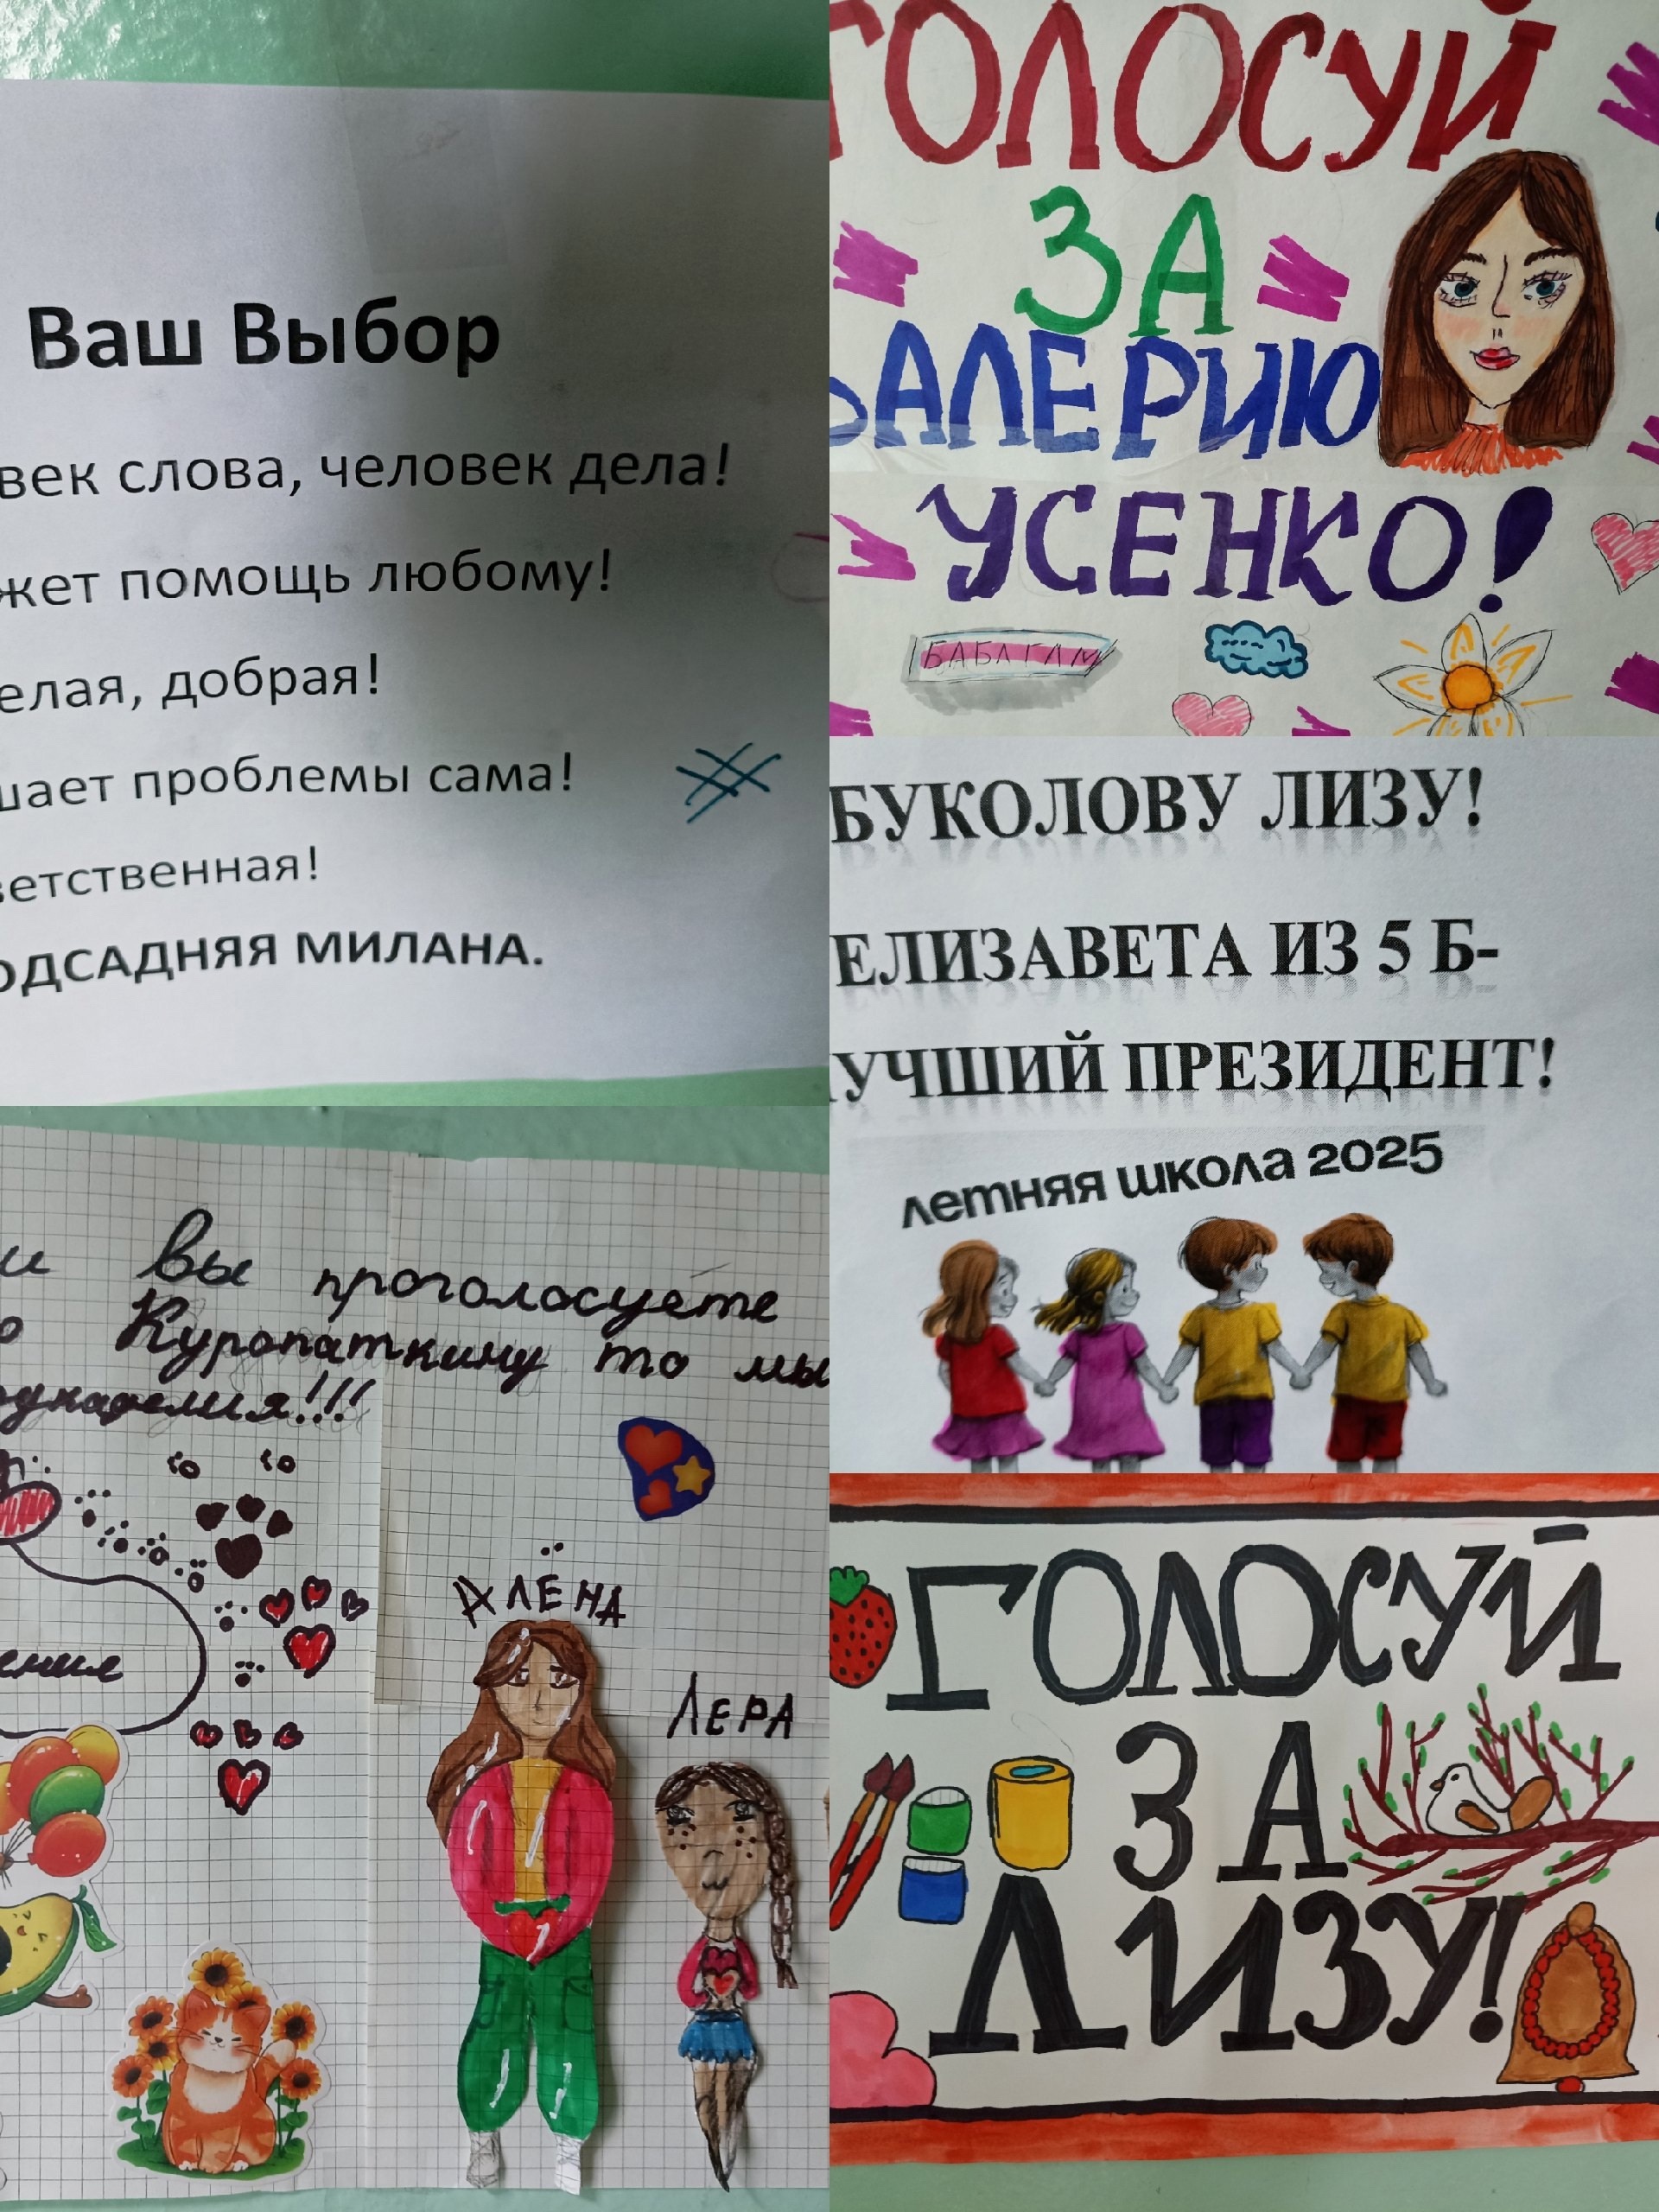 Ваш Выбор
век слова, человек дела!
жет помощь любому!
елая, добрая!
шает проблемы сама!
ветственная!
ОДСАДНЯЯ МИЛАНА.
ГОЛОСУЙ
ЗА
ВАЛЕРИЮ
УСЕНКО!
БАБАГАМ
БУКОЛОВУ ЛИЗУ!
ЕЛИЗАВЕТА ИЗ 5 Б-
ЛУЧШИЙ ПРЕЗИДЕНТ!
летняя школа 2025
и вы проголосуете
Куропаткину то мы
АЛЁНА
ЛЕРА
ГОЛОСУЙ
ЗА
ЛИЗУ!